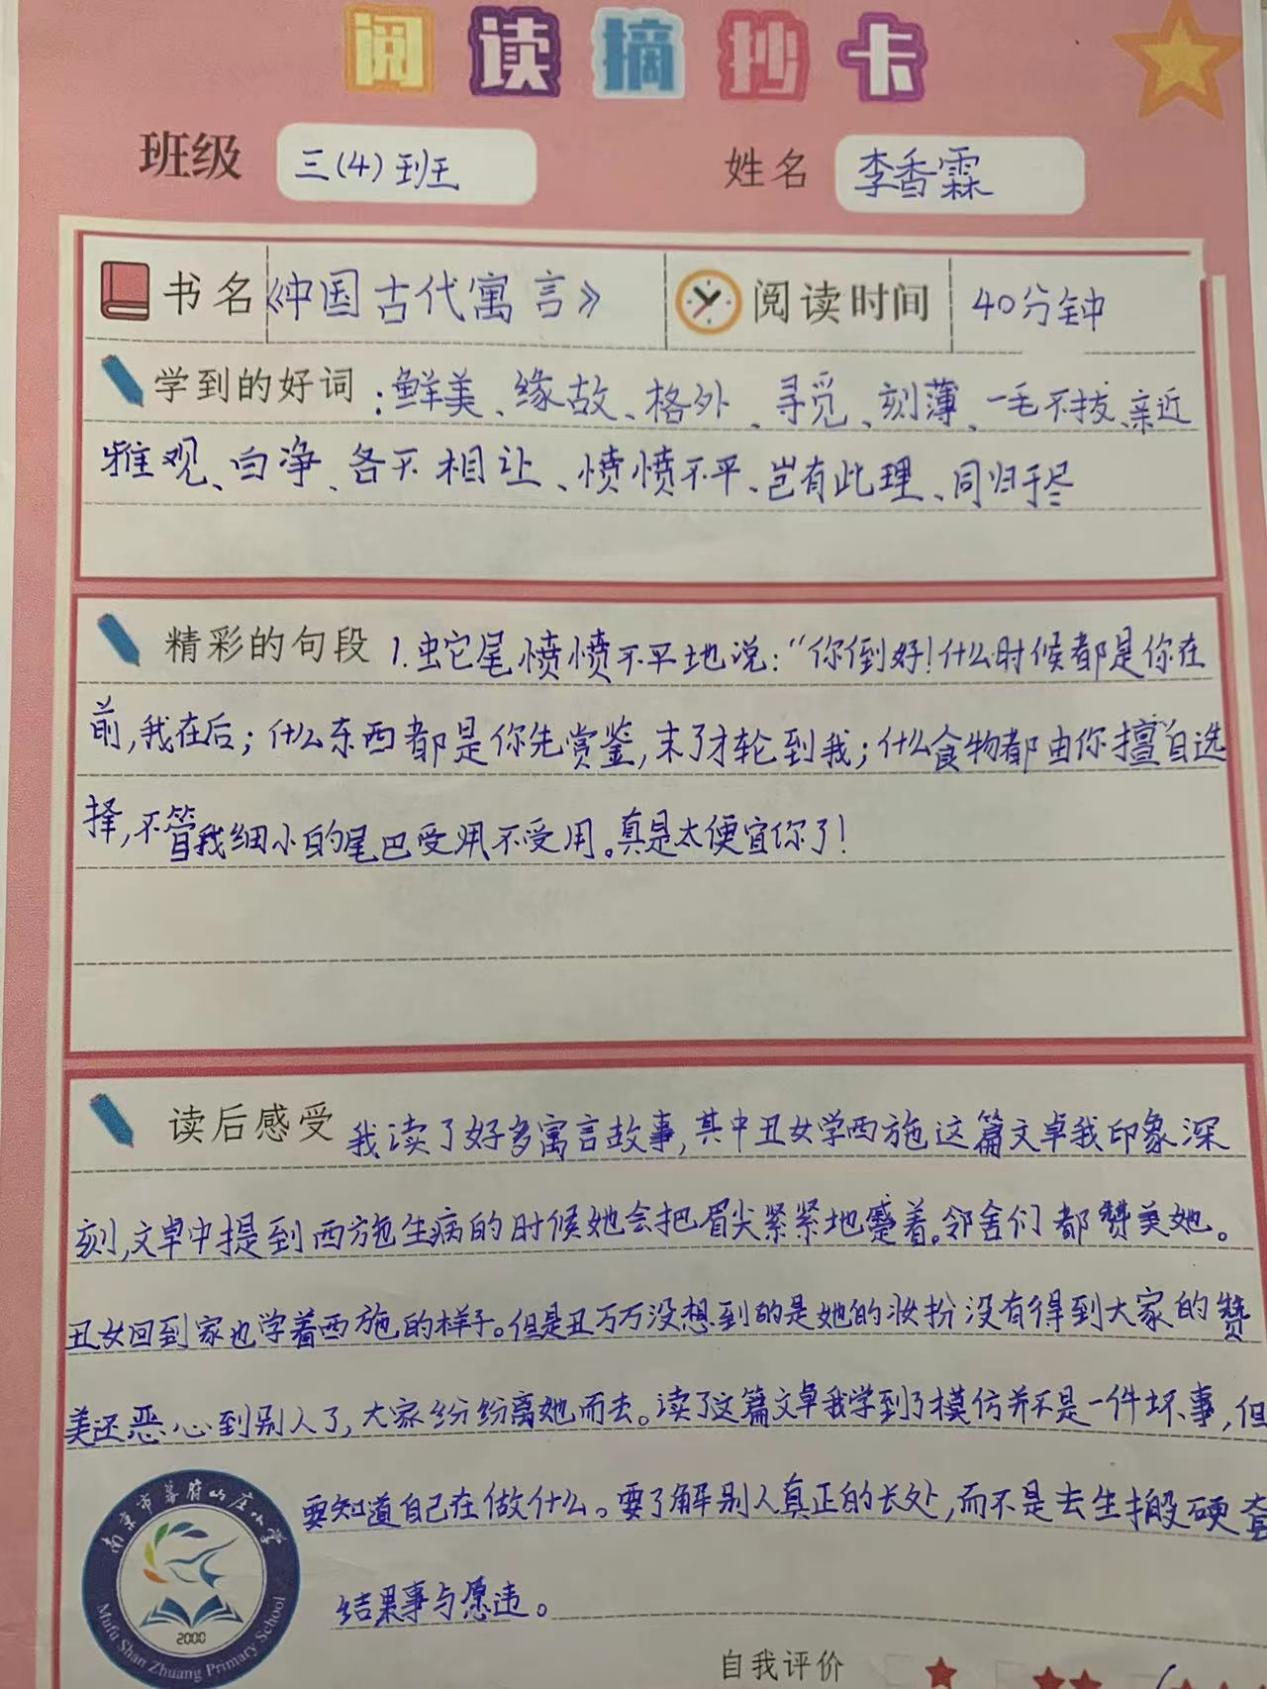 阅读摘抄卡
班级 三(4)班 姓名 李香霖
书名《中国古代寓言》 阅读时间 40分钟
学到的好词：鲜美、缘故、格外、寻觅、刻薄、一毛不拔、亲近
雅观、白净、各不相让、愤愤不平、岂有此理、同归于尽
精彩的句段 1.蛇尾愤愤不平地说：“你倒好！什么时候都是你在
前,我在后；什么东西都是你先赏鉴,末了才轮到我；什么食物都由你擅自选
择,不管我细小的尾巴受用不受用。真是太便宜你了！
读后感受 我读了好多寓言故事,其中丑女学西施这篇文章我印象深
刻,文章中提到西施生病的时候她会把眉尖紧紧地蹙着。邻舍们都赞美她。
丑女回到家也学着西施的样子。但是丑万万没想到的是她的妆扮没有得到大家的赞
美还恶心到别人了,大家纷纷离她而去。读了这篇文章我学到了模仿并不是一件坏事,但
要知道自己在做什么。要了解别人真正的长处,而不是去生搬硬套
结果事与愿违。
南京市幕府山庄小学
2000
Mufu Shan Zhuang Primary School
自我评价